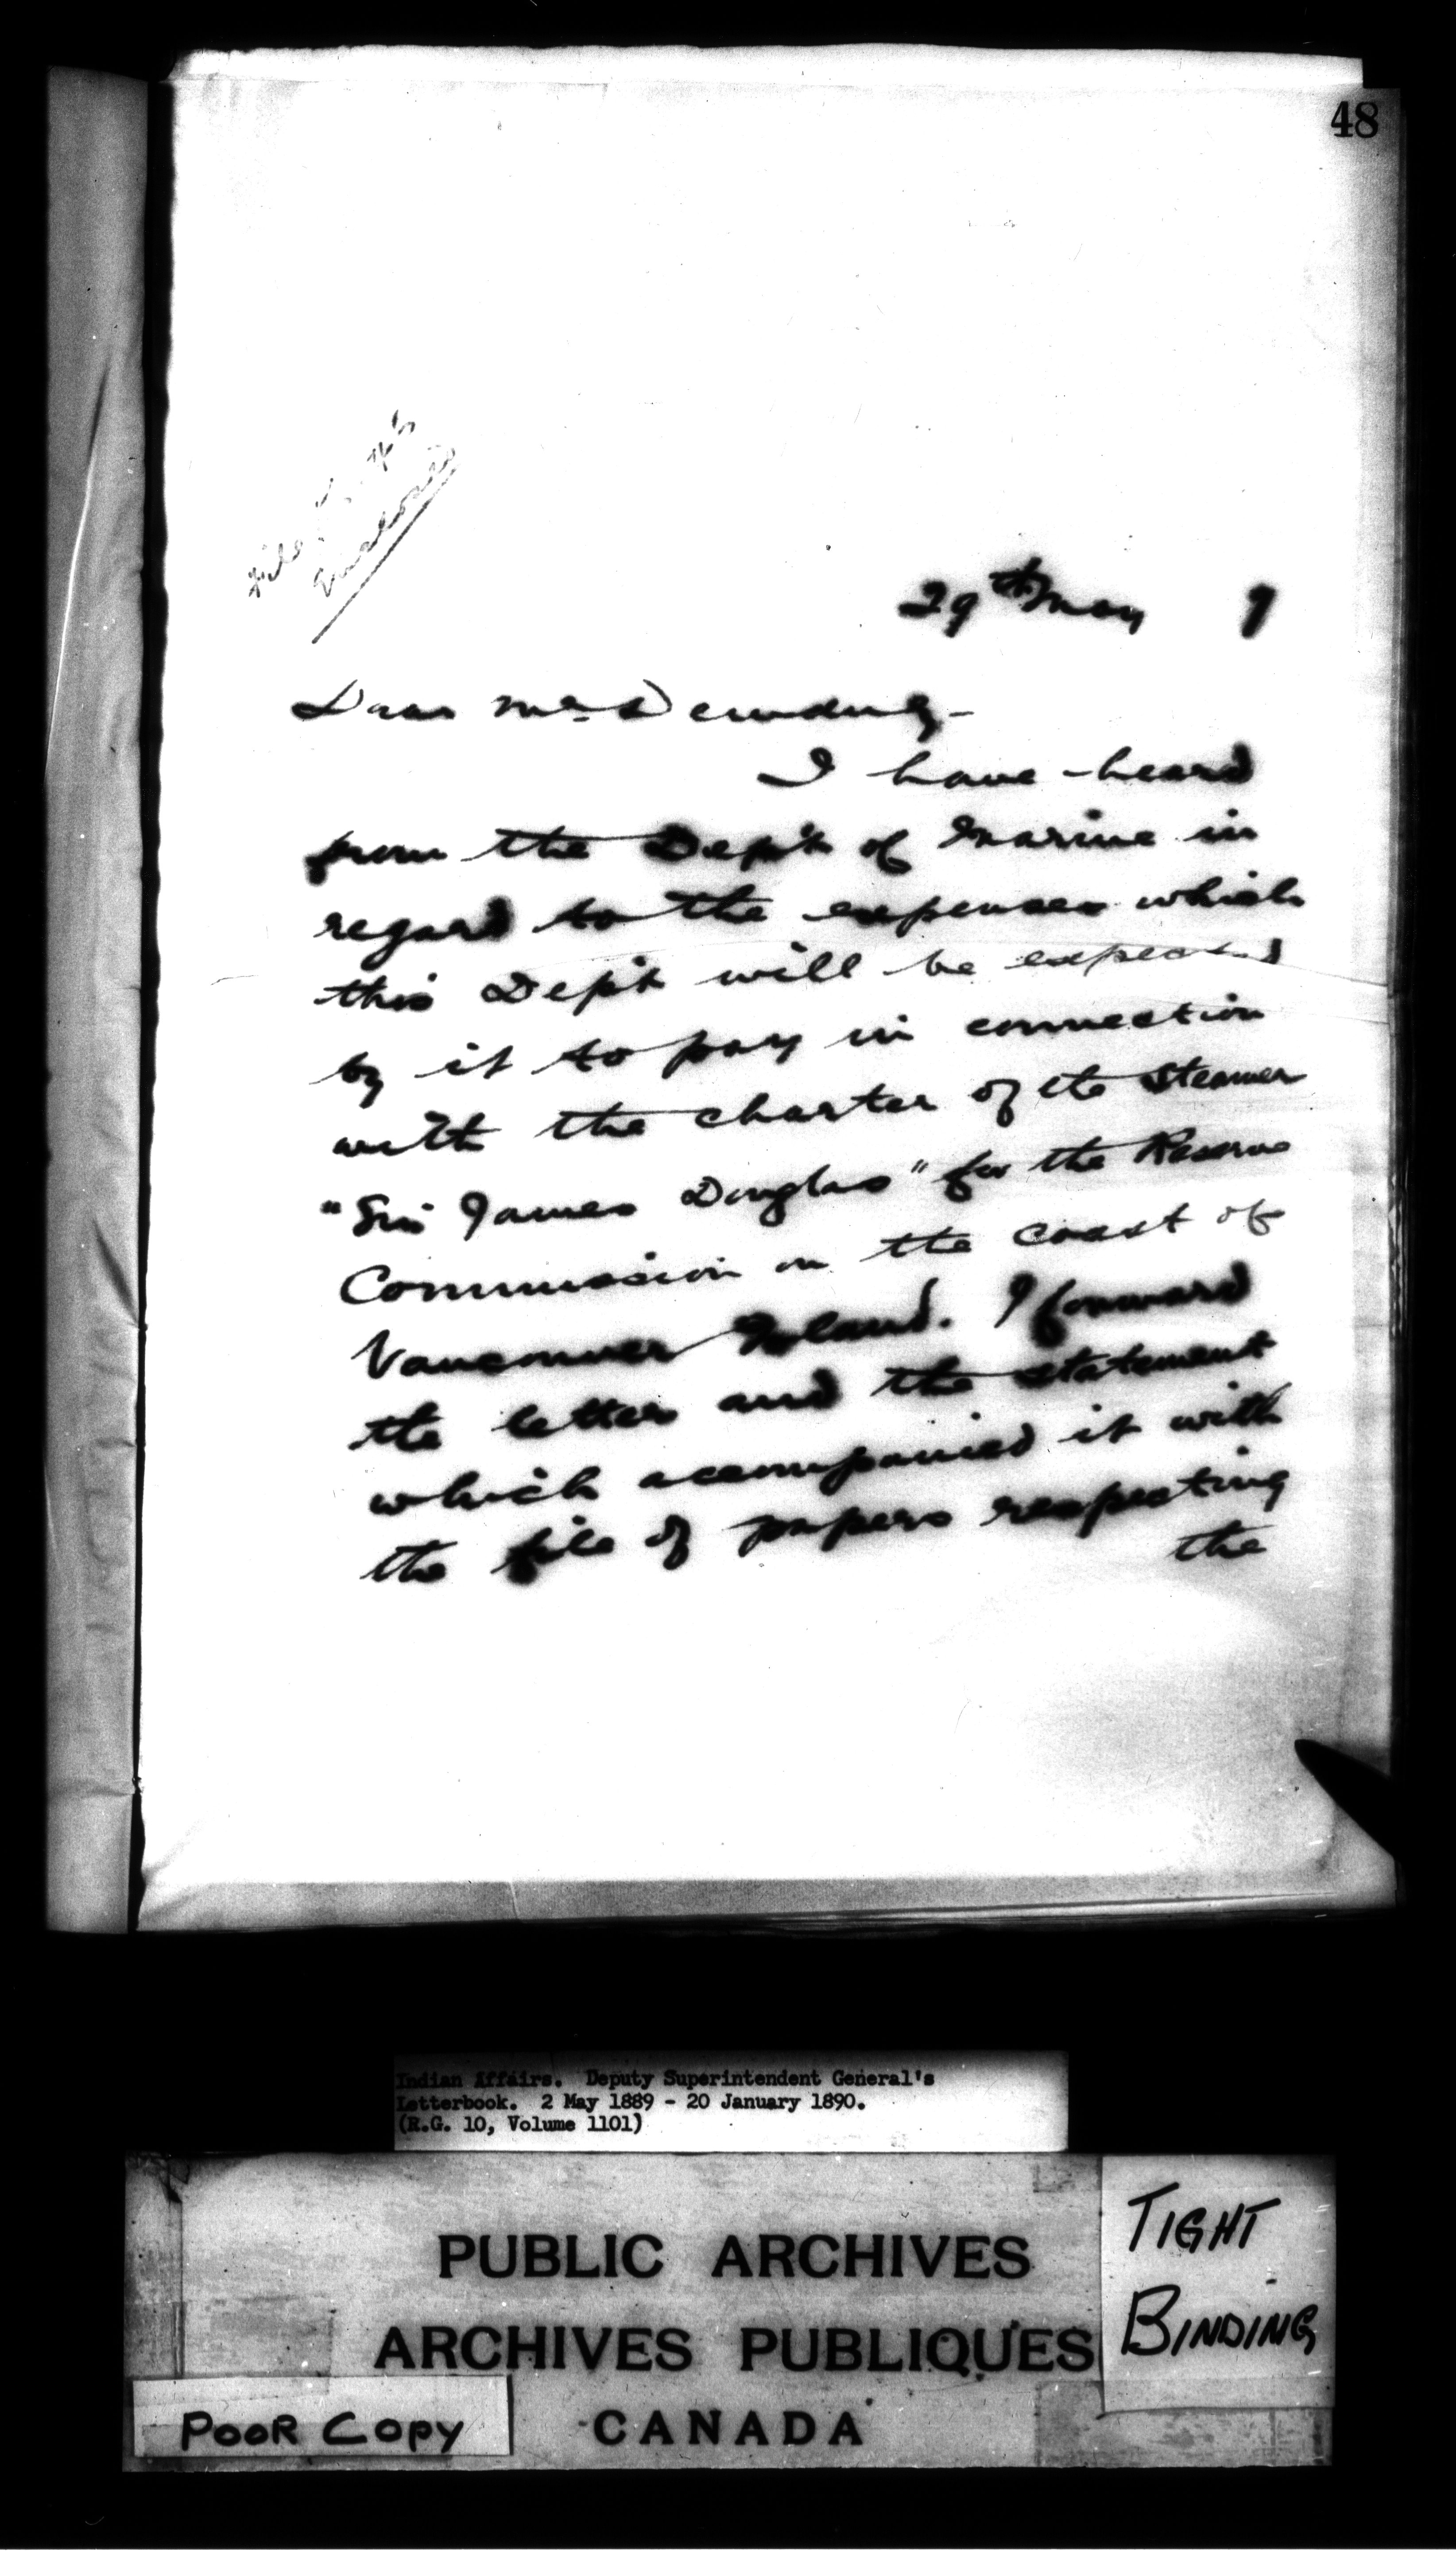 48
29th May 9
Dear Mr. Dewdney -
I have heard
from the Dep't of Marine in
regard to the expenses which
this Dep't will be expected
by it to pay in connection
with the charter of the Steamer
"Sir James Douglas" for the Reserve
Commission on the coast of
Vancouver Island. I forward
the letter and the statement
which accompanied it with
the file of papers respecting
the
Indian Affairs. Deputy Superintendent General's
Letterbook. 2 May 1889 - 20 January 1890.
(R.G. 10, Volume 1101)
PUBLIC ARCHIVES
ARCHIVES PUBLIQUES
CANADA
TIGHT
BINDING
POOR COPY